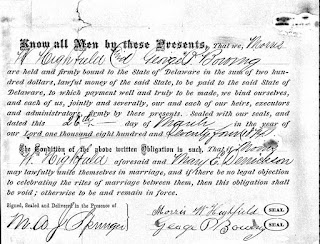 Know all Men by these Presents, That we, Morris
W Highfield and George P. Bowing
are held and firmly bound to the State of Delaware in the sum of two hun-
dred dollars, lawful money of the said State, to be paid to the said State of
Delaware, to which payment well and truly to be made, we bind ourselves,
and each of us, jointly and severally, our and each of our heirs, executors
and administrators, firmly by these presents. Sealed with our seals, and
dated this day of March in the year of
our Lord one thousand eight hundred and
The Condition of the above written Obligation is Such, That if Morris
W. Highfield aforesaid and Mary E. Dennison
may lawfully unite themselves in marriage, and if there be no legal objection
to celebrating the rites of marriage between them, then this obligation shall
be void; otherwise to be and remain in force.
Signed, Sealed and Delivered in the Presence of
Morris W Highfield SEAL
Wm A. J. Springer
George P. Bowing SEAL